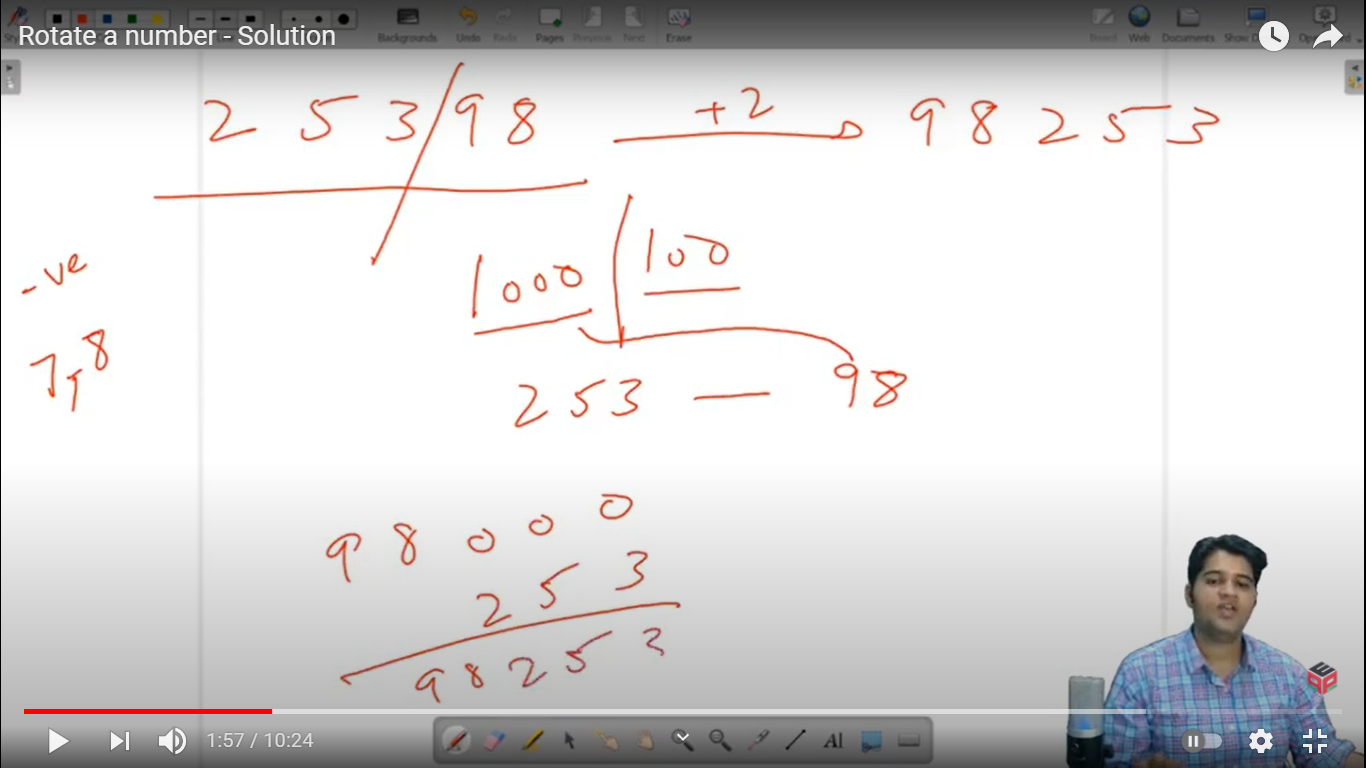 Rotate a number - Solution
Backgrounds Undo Redo Pages Previous Next Erase Board Web Documents
2 5 3 / 9 8 +2 9 8 2 5 3
-ve
1000 | 100
7, 8
253 — 98
9 8 0 0 0
2 5 3
9 8 2 5 3
1:57 / 10:24
AI